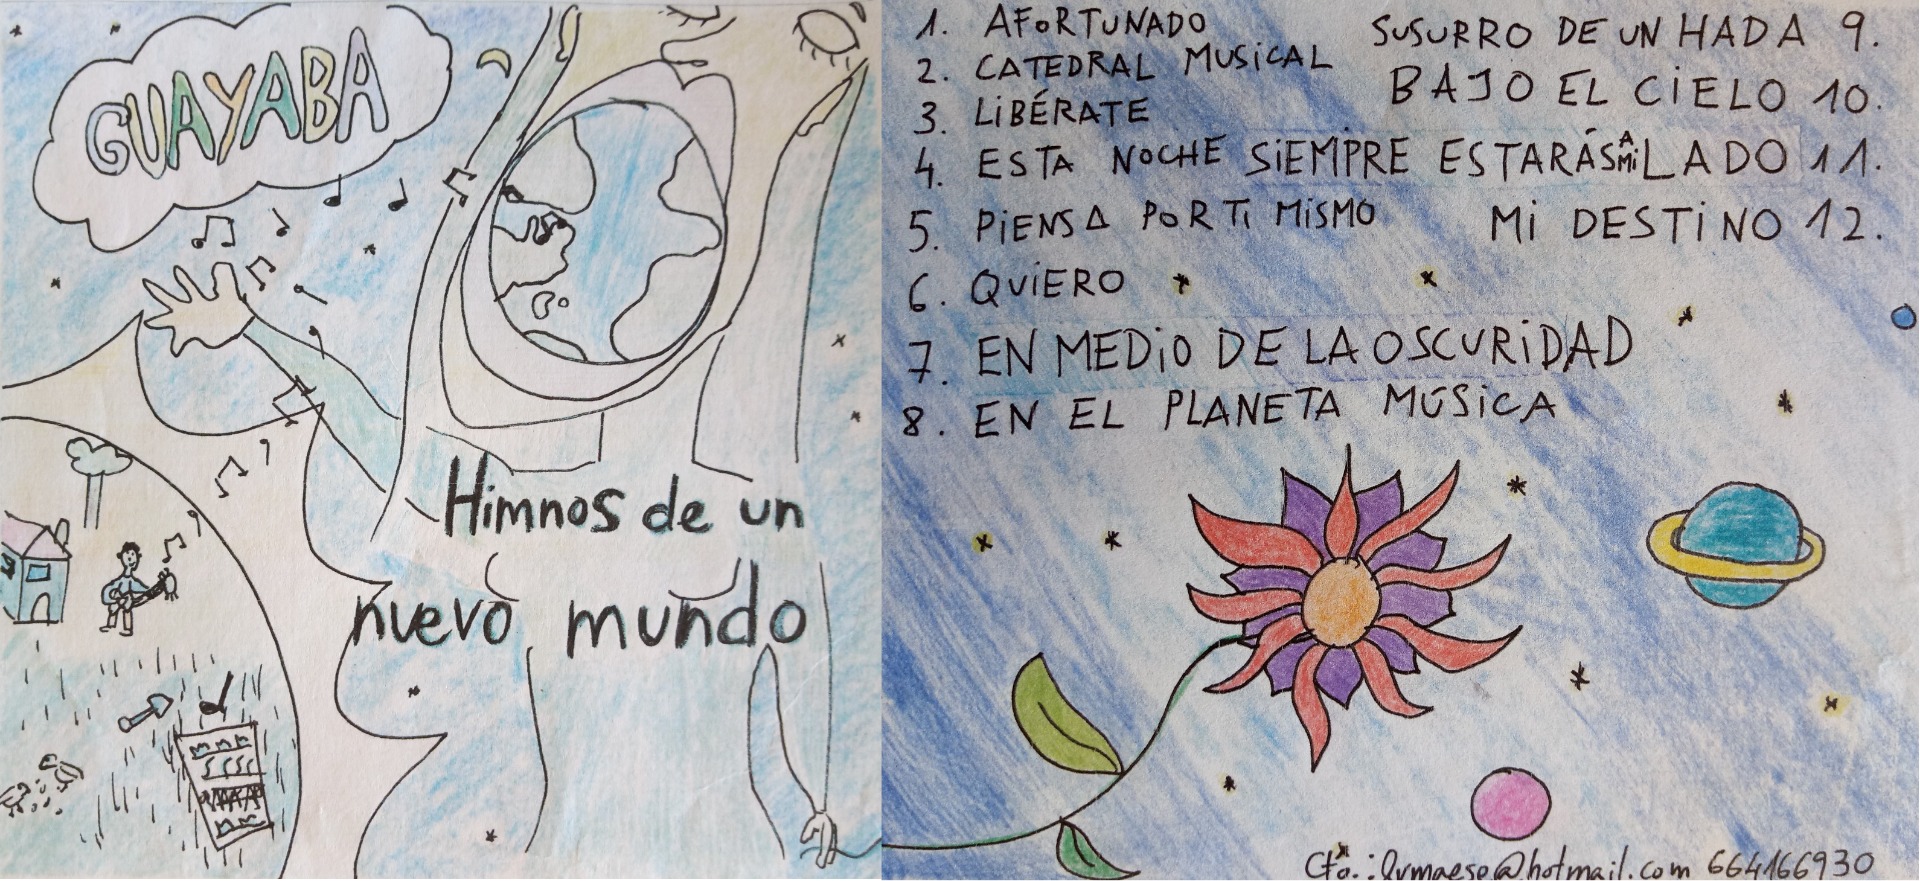 GUAYABA
Himnos de un
nuevo mundo
1. AFORTUNADO
2. CATEDRAL MUSICAL
3. LIBÉRATE
4. ESTA NOCHE
5. PIENSA POR TI MISMO
6. QUIERO
7. EN MEDIO DE LA OSCURIDAD
8. EN EL PLANETA MÚSICA
SUSURRO DE UN HADA 9.
BAJO EL CIELO 10.
SIEMPRE ESTARÁS A MI LADO 11.
MI DESTINO 12.
Cto.: @hotmail.com 664166930